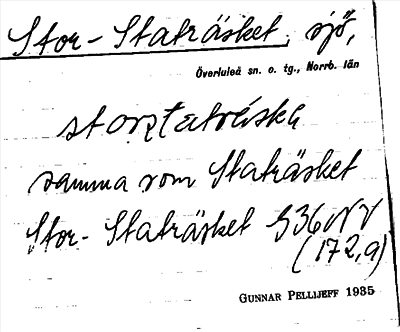 Stor-Staträsket, sjö,
Överluleå sn. o. tg., Norrb. län
samma som Staträsket
Stor-Staträsket 936 NV
(172,9)
GUNNAR PELLIJEFF 1935